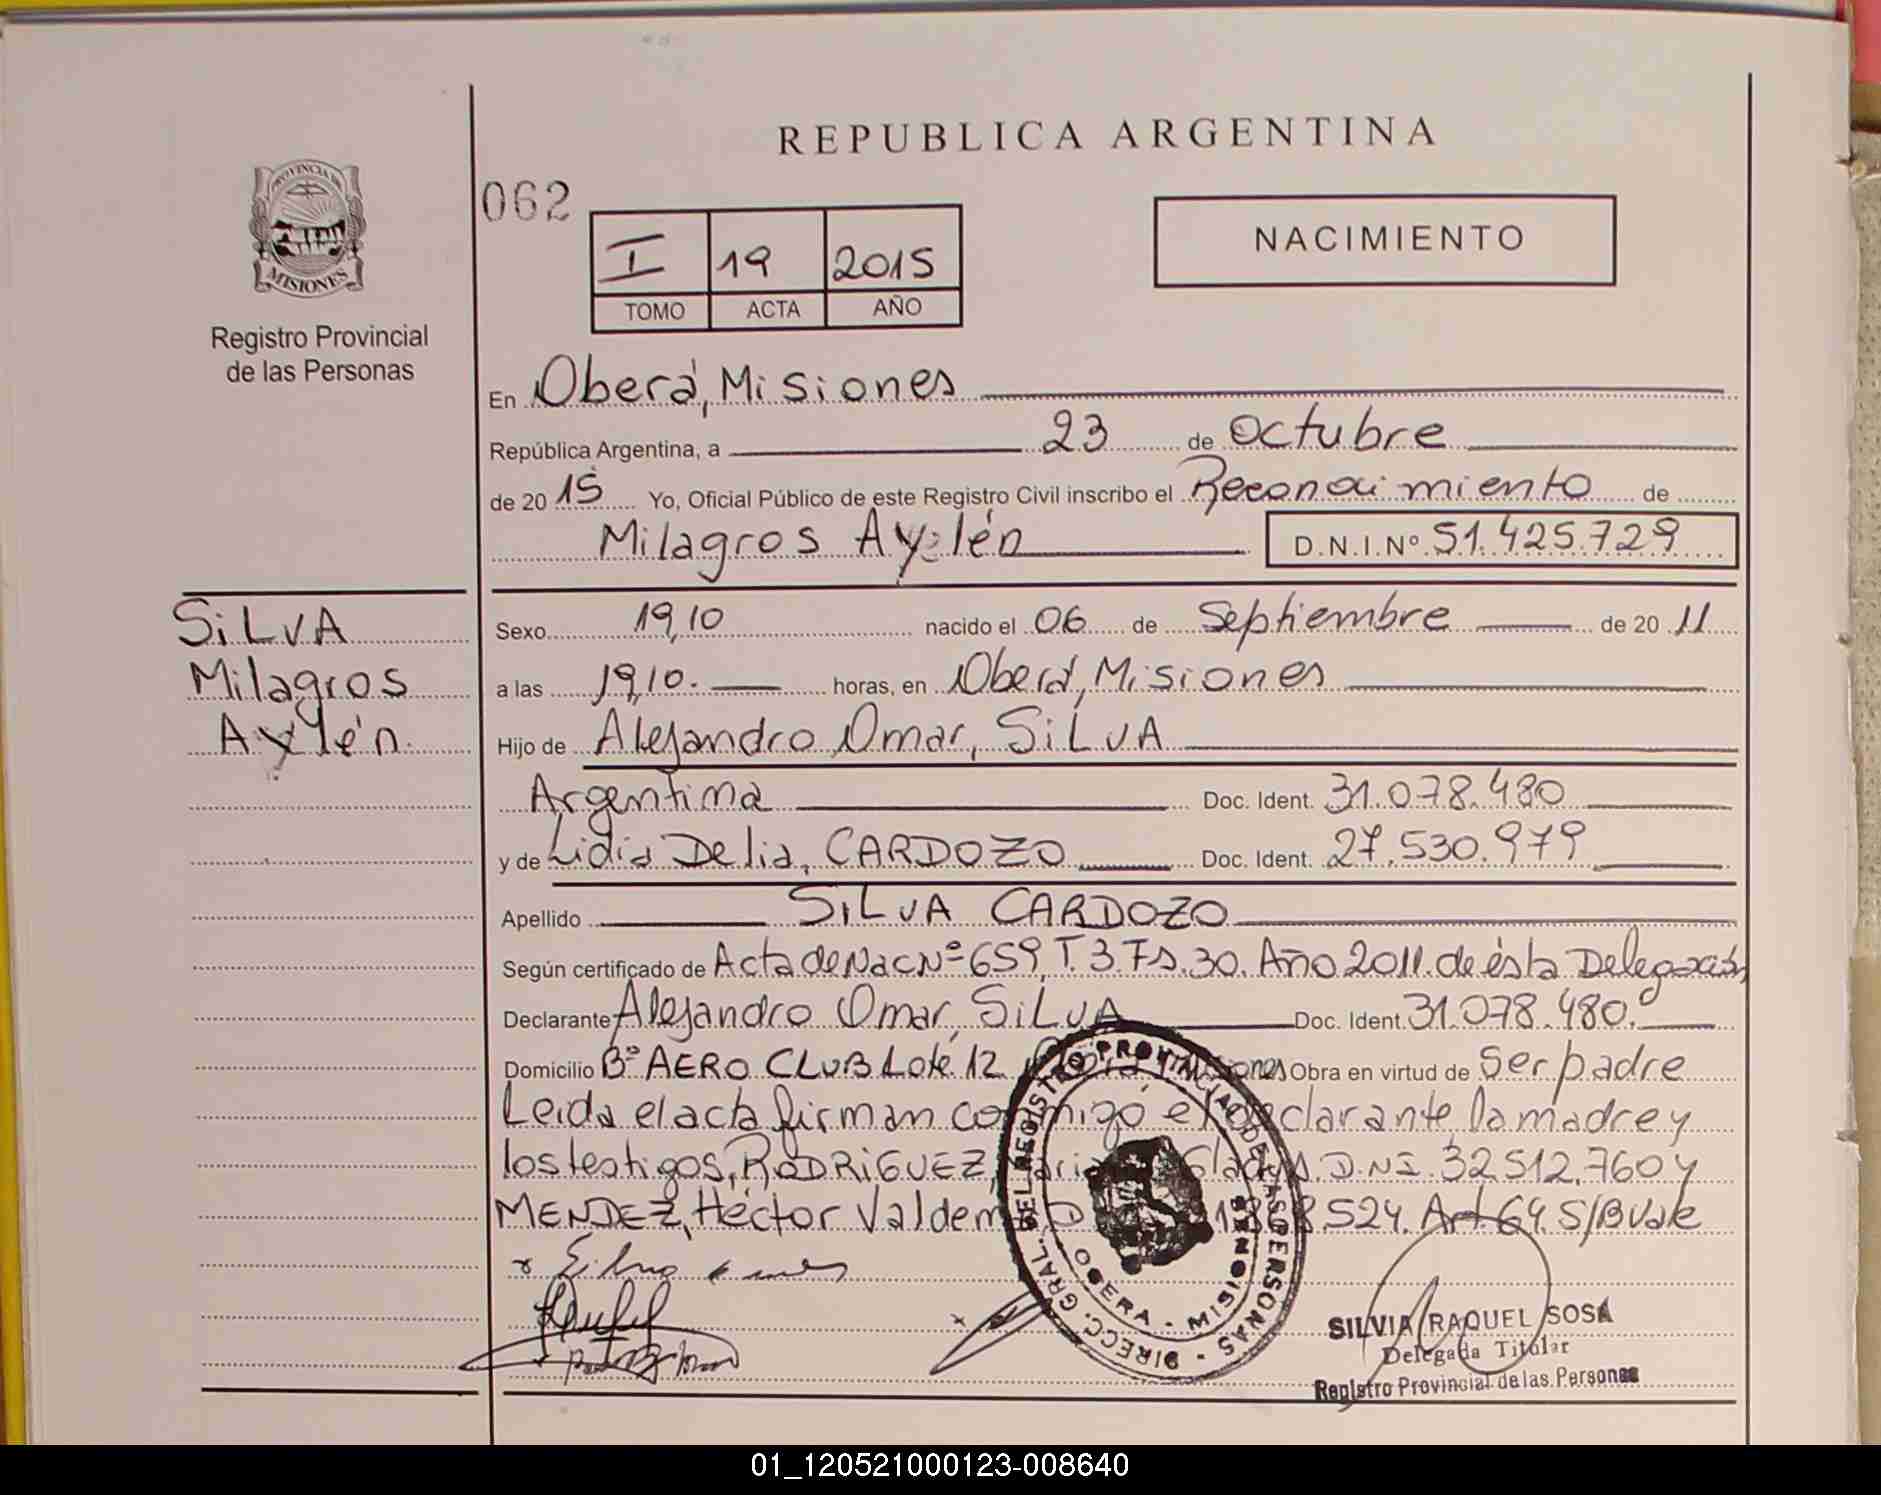 REPUBLICA ARGENTINA
PROVINCIA DE
MISIONES
Registro Provincial
de las Personas
062
I 19 2015
TOMO ACTA AÑO
NACIMIENTO
En Oberá, Misiones
República Argentina, a 23 de Octubre
de 2015 Yo, Oficial Público de este Registro Civil inscribo el Reconocimiento de
Milagros Aylén D.N.I.Nº 51.425.729
SiLVA
Milagros
Aylén
Sexo 19,10 nacido el 06 de Septiembre de 2011
a las 19,10. horas, en Oberá, Misiones
Hijo de Alejandro Omar, SiLVA
Argentina Doc. Ident. 31.078.480
y de Lidia Delia, CARDOZO Doc. Ident. 27.530.979
Apellido SiLVA CARDOZO
Según certificado de Acta de Nac Nº 659, T. 3. Fs. 30. Año 2011. de ésta Delegación
Declarante Alejandro Omar, SiLVA Doc. Ident. 31.078.480.
Domicilio Bº AERO CLUB Lote 12 Obra en virtud de Ser padre
Leida el acta firman conmigo el declarante, la madre y
los testigos, RODRiGUEZ, D.NI. 32.512.760 y
MENDEZ, Héctor Valdem 524. Art. 64. S/B Vale
DIRECC. GRAL. DEL REGISTRO PROVINCIAL DE LAS PERSONAS
OBERA - MISIONES
SILVIA RAQUEL SOSA
Delegada Titular
Registro Provincial de las Personas
01_120521000123-008640